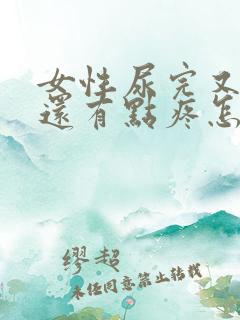 女性尿完又
還有點疼怎
缪超
未经同意禁止转载